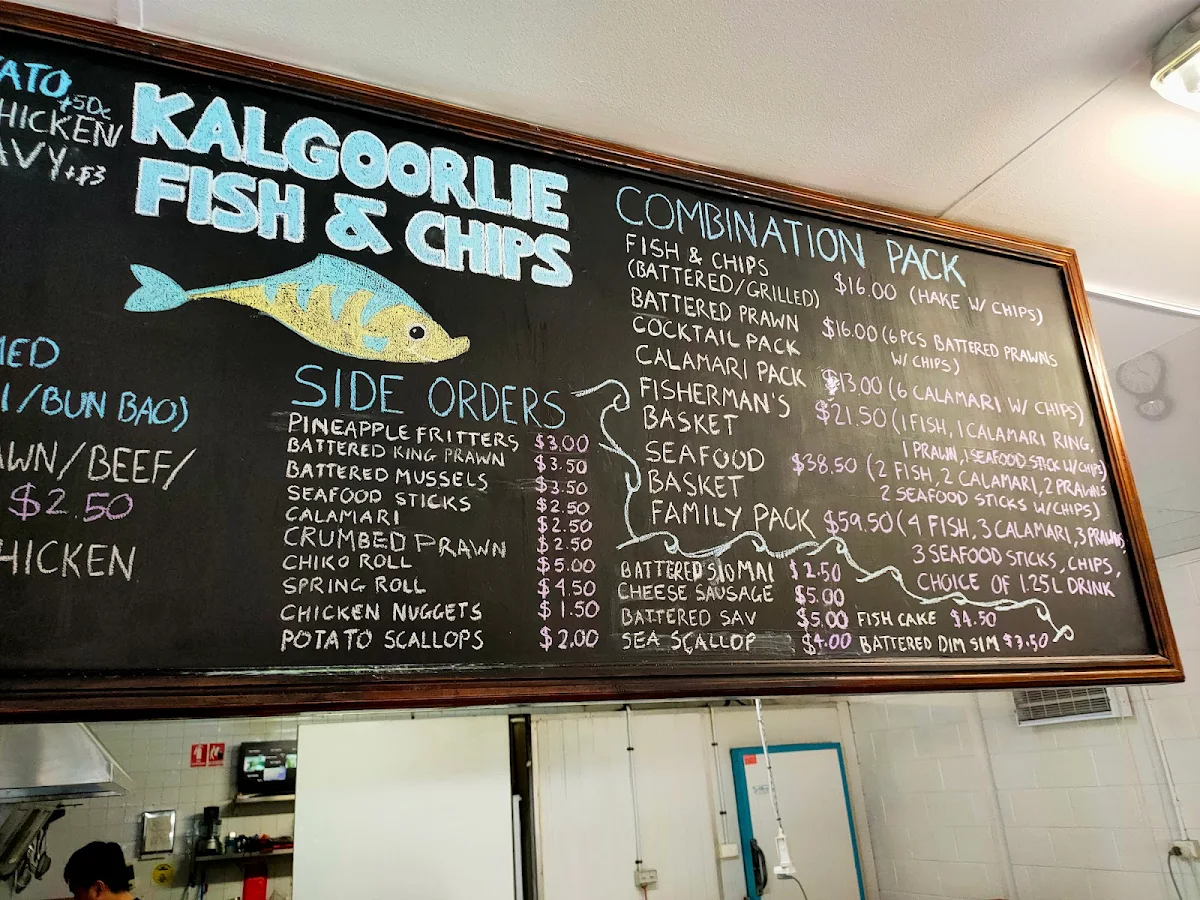 ATO
+50c
HICKEN/
AVY +$3
KALGOORLIE
FISH & CHIPS
MED
I/BUN BAO)
AWN/BEEF/
$2.50
HICKEN
SIDE ORDERS
PINEAPPLE FRITTERS $3.00
BATTERED KING PRAWN $3.50
BATTERED MUSSELS $3.50
SEAFOOD STICKS $2.50
CALAMARI $2.50
CRUMBED PRAWN $2.50
CHIKO ROLL $5.00
SPRING ROLL $4.50
CHICKEN NUGGETS $1.50
POTATO SCALLOPS $2.00
COMBINATION PACK
FISH & CHIPS
(BATTERED/GRILLED) $16.00 (HAKE W/ CHIPS)
BATTERED PRAWN
COCKTAIL PACK $16.00 (6PCS BATTERED PRAWNS
W/ CHIPS)
CALAMARI PACK $13.00 (6 CALAMARI W/ CHIPS)
FISHERMAN'S
BASKET $21.50 (1 FISH, 1 CALAMARI RING,
1 PRAWN, 1 SEAFOOD STICK W/ CHIPS)
SEAFOOD
BASKET $38.50 (2 FISH, 2 CALAMARI, 2 PRAWNS
2 SEAFOOD STICKS W/CHIPS)
FAMILY PACK $59.50 (4 FISH, 3 CALAMARI, 3 PRAWNS,
3 SEAFOOD STICKS, CHIPS,
CHOICE OF 1.25L DRINK
BATTERED SIOMAI $2.50
CHEESE SAUSAGE $5.00
BATTERED SAV $5.00 FISH CAKE $4.50
SEA SCALLOP $4.00 BATTERED DIM SIM $3.50